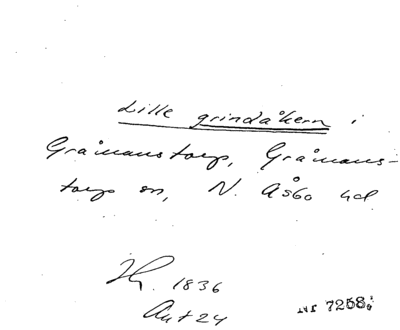 Lille grindåkern i
Gråmanstorp, Gråmans-
torps sn, N. Åsbo hd
1836
Akt 24
Nr 7258